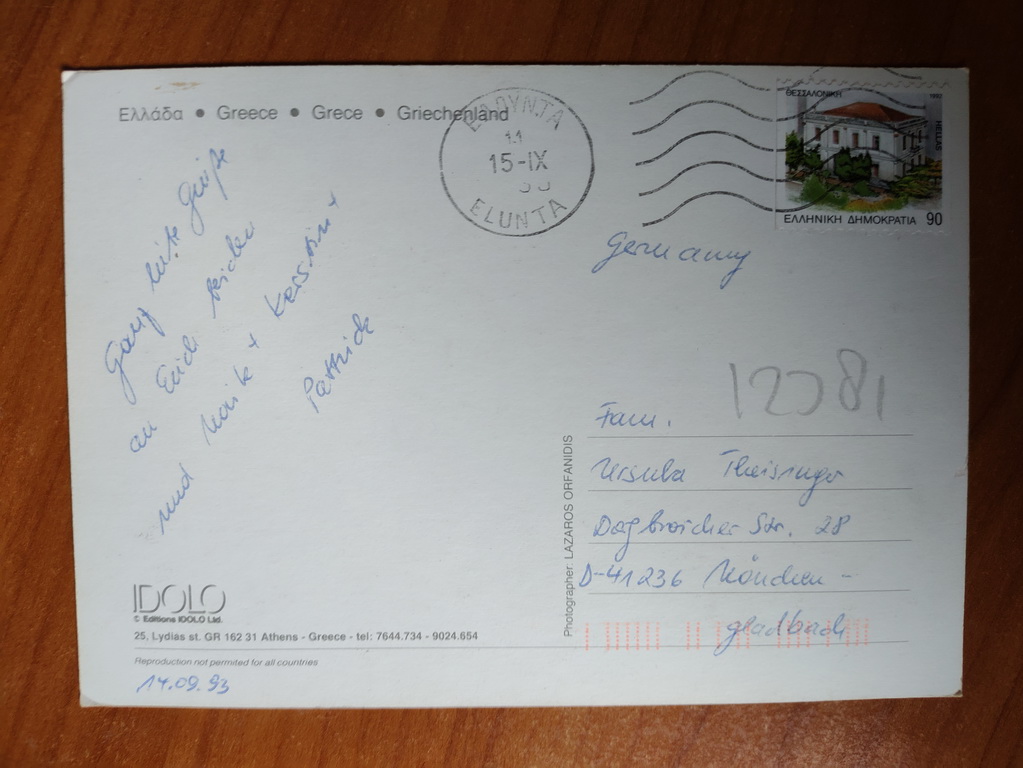 Ελλάδα • Greece • Grece • Griechenland
ΕΛΟΥΝΤΑ
11
15-IX
ELUNTA
ΘΕΣΣΑΛΟΝΙΚΗ
HELLAS
ΕΛΛΗΝΙΚΗ ΔΗΜΟΚΡΑΤΙΑ 90
Ganz liebe Grüße
an Euch beiden
und Maik + Kerstin +
Patrick
Germany
Fam.
Ursula
Str. 28
D-41236 Mönchen-
gladbach
Photographer: LAZAROS ORFANIDIS
IDOLO
© Editions IDOLO Ltd.
25, Lydias st. GR 162 31 Athens - Greece - tel: 7644.734 - 9024.654
Reproduction not permitted for all countries
14.09.93